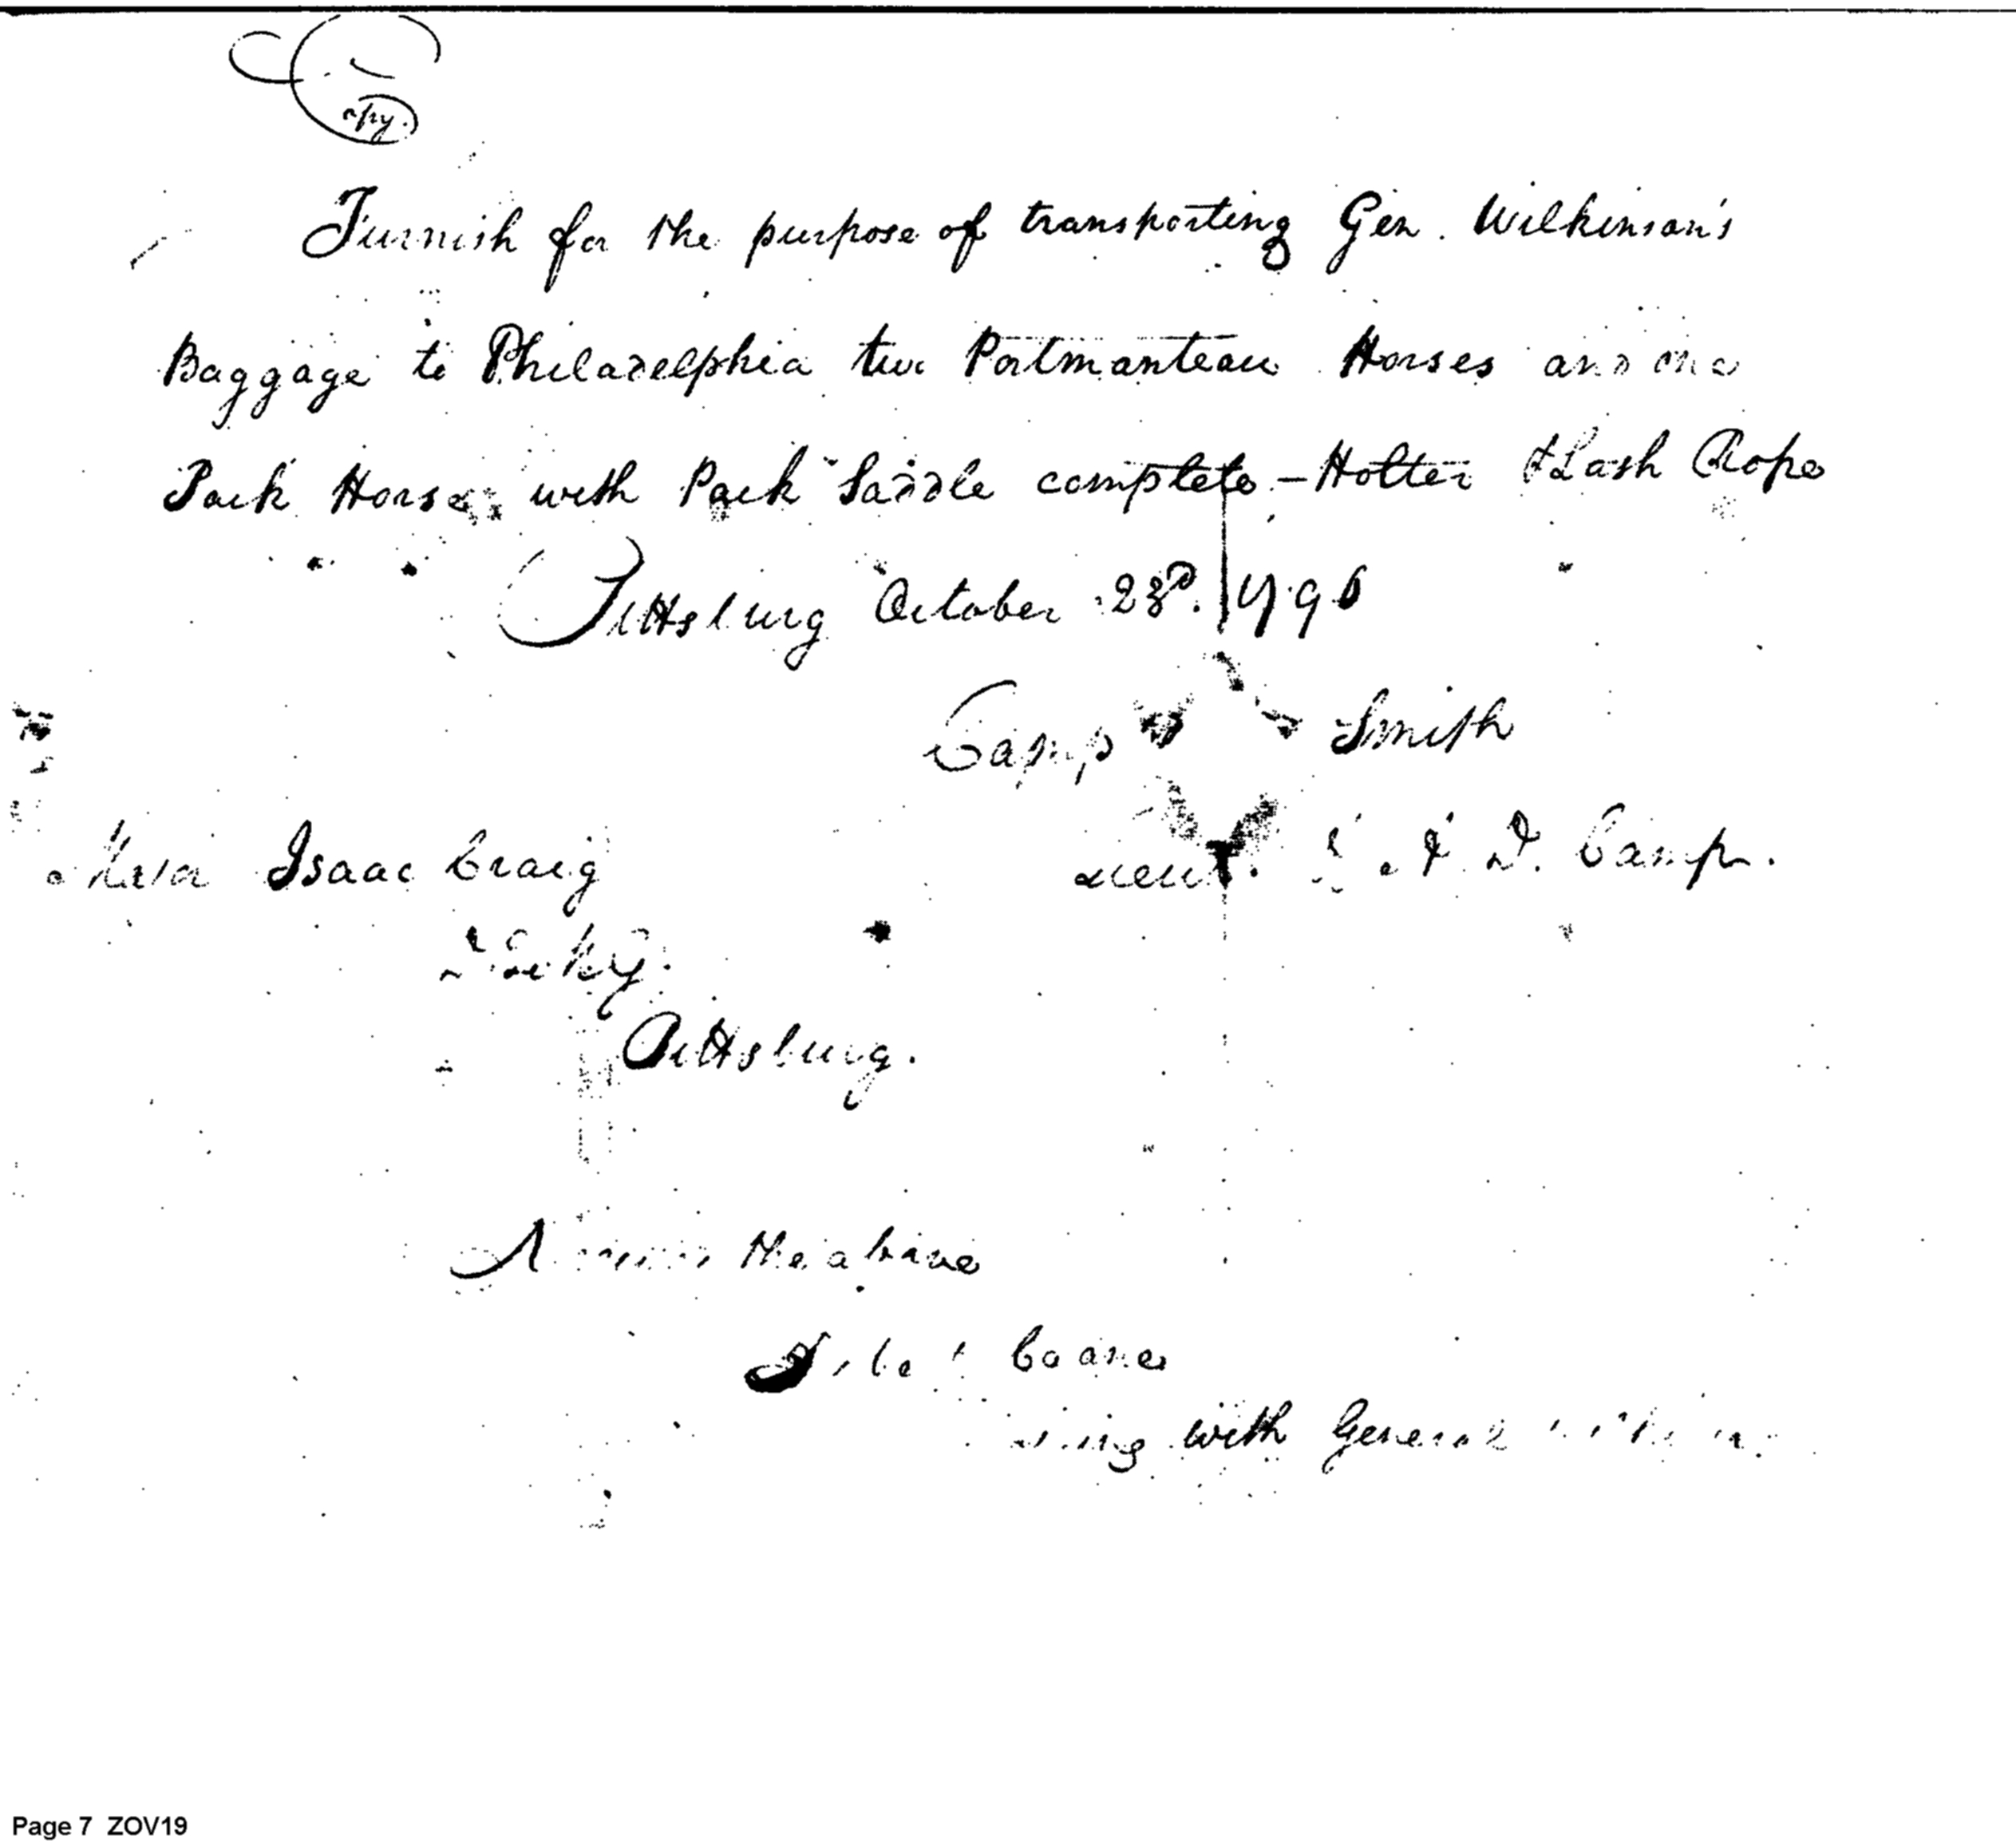 Copy.
Furnish for the purpose of transporting Gen. Wilkinson's
Baggage to Philadelphia two Portmanteau Horses and one
Pack Horse, with Pack Saddle complete - Holter & Lash Rope
Pittsburg October 23d. 1796
Camp Smith
Lieut. & A D. Camp.
Major Isaac Craig
Pittsburg.
the above
with General
Page 7 ZOV19